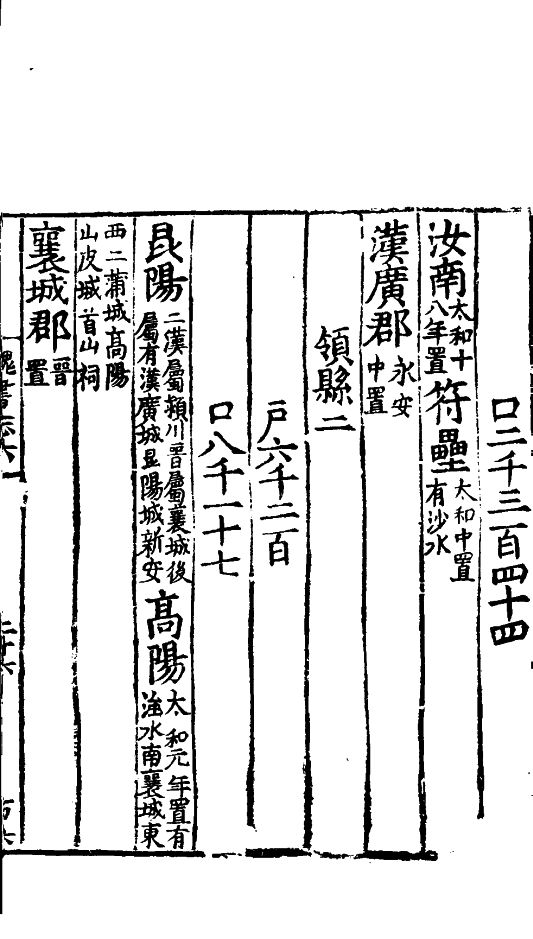 口二千三百四十四
汝南太和十八年置符壘太和中置有沙水
漢廣郡永安中置
領縣二
戶六千二百
口八千一十七
昆陽二漢屬潁川晉屬襄城後屬有漢廣城昆陽城新安髙陽太和元年置有滍水南襄城東
西二蒲城髙陽山皮城首山祠
襄城郡晉置